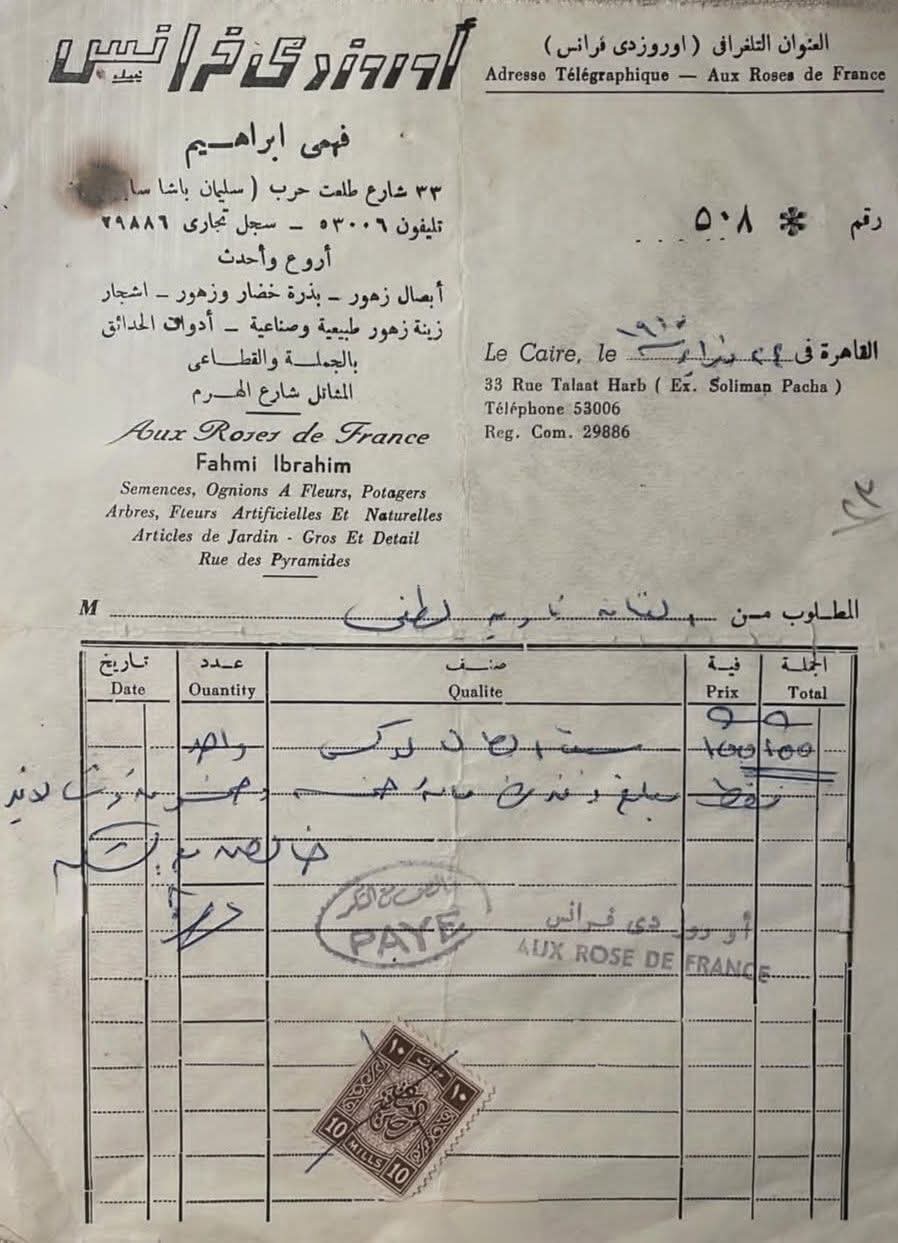 أوروزدى فرانس
فهمى ابراهيم
٣٣ شارع طلعت حرب ( سليمان باشا
تليفون ٥٣٠٠٦ ـ سجل تجارى ٢٩٨٨٦
أروع وأحدث
أبصال زهور ـ بذرة خضار وزهور ـ اشجار
زينة زهور طبيعية وصناعية ـ أدوات الحدائق
بالجملة والقطاعى
المشاتل شارع الهرم
Aux Roses de France
Fahmi Ibrahim
Semences, Ognions A Fleurs, Potagers
Arbres, Fleurs Artificielles Et Naturelles
Articles de Jardin - Gros Et Detail
Rue des Pyramides
العنوان التلغرافى ( اوروزدى فرانس )
Adresse Télégraphique — Aux Roses de France
رقم * ٥٠٨
القاهرة فى
Le Caire, le
33 Rue Talaat Harb ( Ex. Soliman Pacha )
Téléphone 53006
Reg. Com. 29886
المطلوب من الفنانة نادية لطفى M
تاريخ عدد صنف فية الجملة
Date Ouantity Qualite Prix Total
واحد
فقط مبلغ وقدره
خالص مع الشكر
PAYE
أوروز دى فرانس
AUX ROSE DE FRANCE
١٠ مليمات ١٠
10 MILLS 10